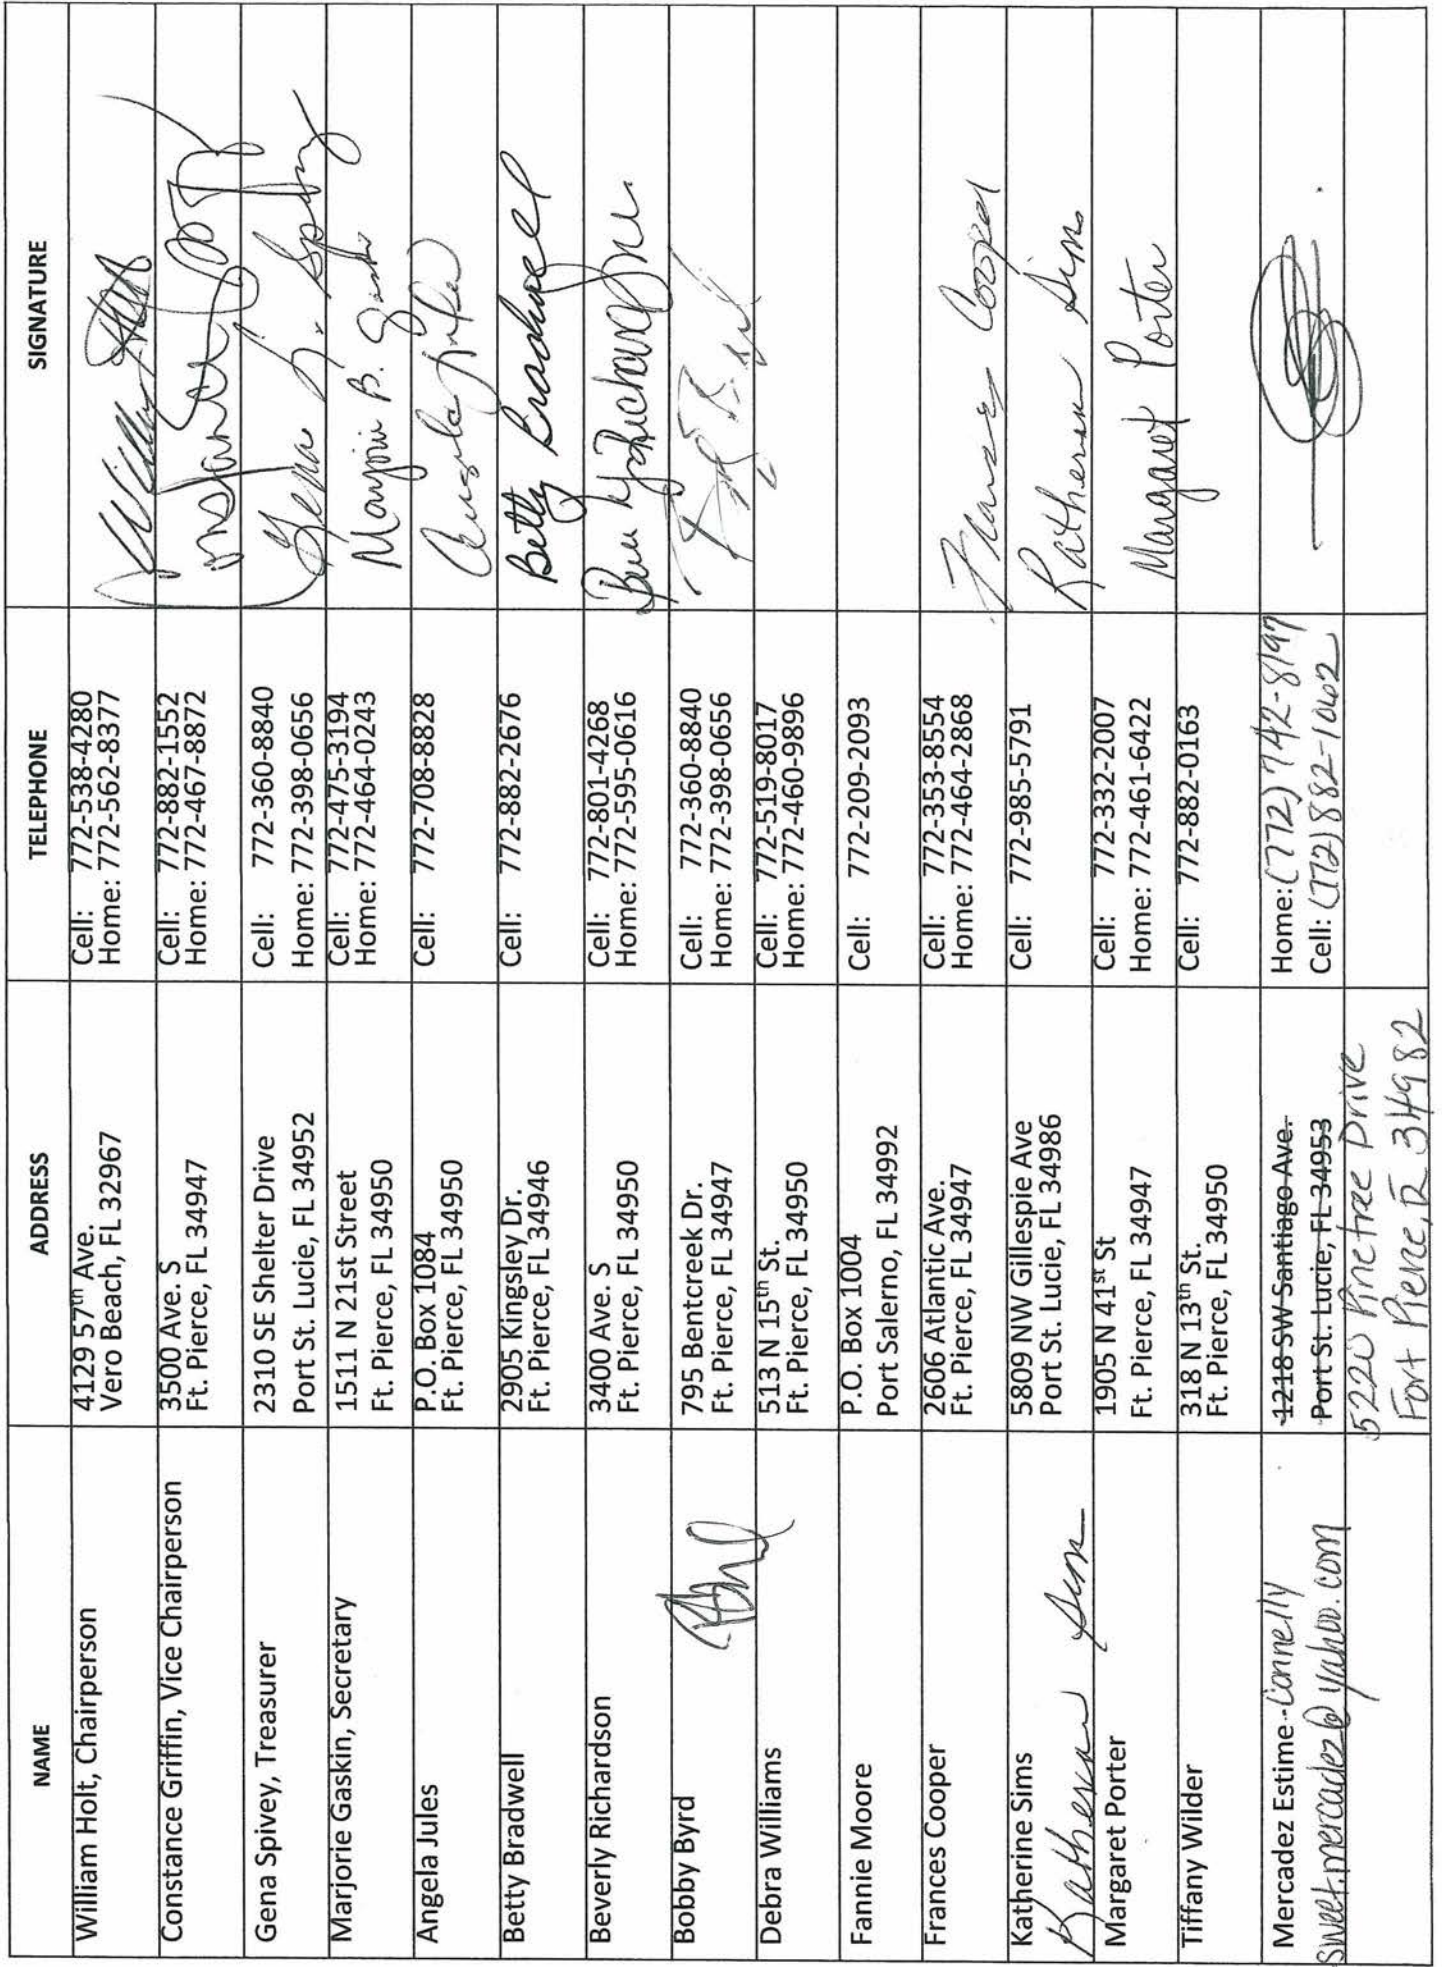 NAME ADDRESS TELEPHONE SIGNATURE
William Holt, Chairperson
4129 57th Ave.
Vero Beach, FL 32967
Cell: 772-538-4280
Home: 772-562-8377
Constance Griffin, Vice Chairperson
3500 Ave. S
Ft. Pierce, FL 34947
Cell: 772-882-1552
Home: 772-467-8872
Gena Spivey, Treasurer
2310 SE Shelter Drive
Port St. Lucie, FL 34952
Cell: 772-360-8840
Home: 772-398-0656
Marjorie Gaskin, Secretary
1511 N 21st Street
Ft. Pierce, FL 34950
Cell: 772-475-3194
Home: 772-464-0243
Marjorie B. Gaskin
Angela Jules
P.O. Box 1084
Ft. Pierce, FL 34950
Cell: 772-708-8828
Angela Jules
Betty Bradwell
2905 Kingsley Dr.
Ft. Pierce, FL 34946
Cell: 772-882-2676
Betty Bradwell
Beverly Richardson
3400 Ave. S
Ft. Pierce, FL 34950
Cell: 772-801-4268
Home: 772-595-0616
Bobby Byrd
795 Bentcreek Dr.
Ft. Pierce, FL 34947
Cell: 772-360-8840
Home: 772-398-0656
Debra Williams
513 N 15th St.
Ft. Pierce, FL 34950
Cell: 772-519-8017
Home: 772-460-9896
Fannie Moore
P.O. Box 1004
Port Salerno, FL 34992
Cell: 772-209-2093
Frances Cooper
2606 Atlantic Ave.
Ft. Pierce, FL 34947
Cell: 772-353-8554
Home: 772-464-2868
Frances Cooper
Katherine Sims
Katherine Sims
5809 NW Gillespie Ave
Port St. Lucie, FL 34986
Cell: 772-985-5791
Katherine Sims
Margaret Porter
1905 N 41st St
Ft. Pierce, FL 34947
Cell: 772-332-2007
Home: 772-461-6422
Margaret Porter
Tiffany Wilder
318 N 13th St.
Ft. Pierce, FL 34950
Cell: 772-882-0163
Mercadez Estime-Connelly
sweet.mercadez@yahoo.com
1218 SW Santiago Ave.
Port St. Lucie, FL 34953
5220 Pinetree Drive
Fort Pierce, FL 34982
Home: (772) 742-8197
Cell: (772) 882-1062